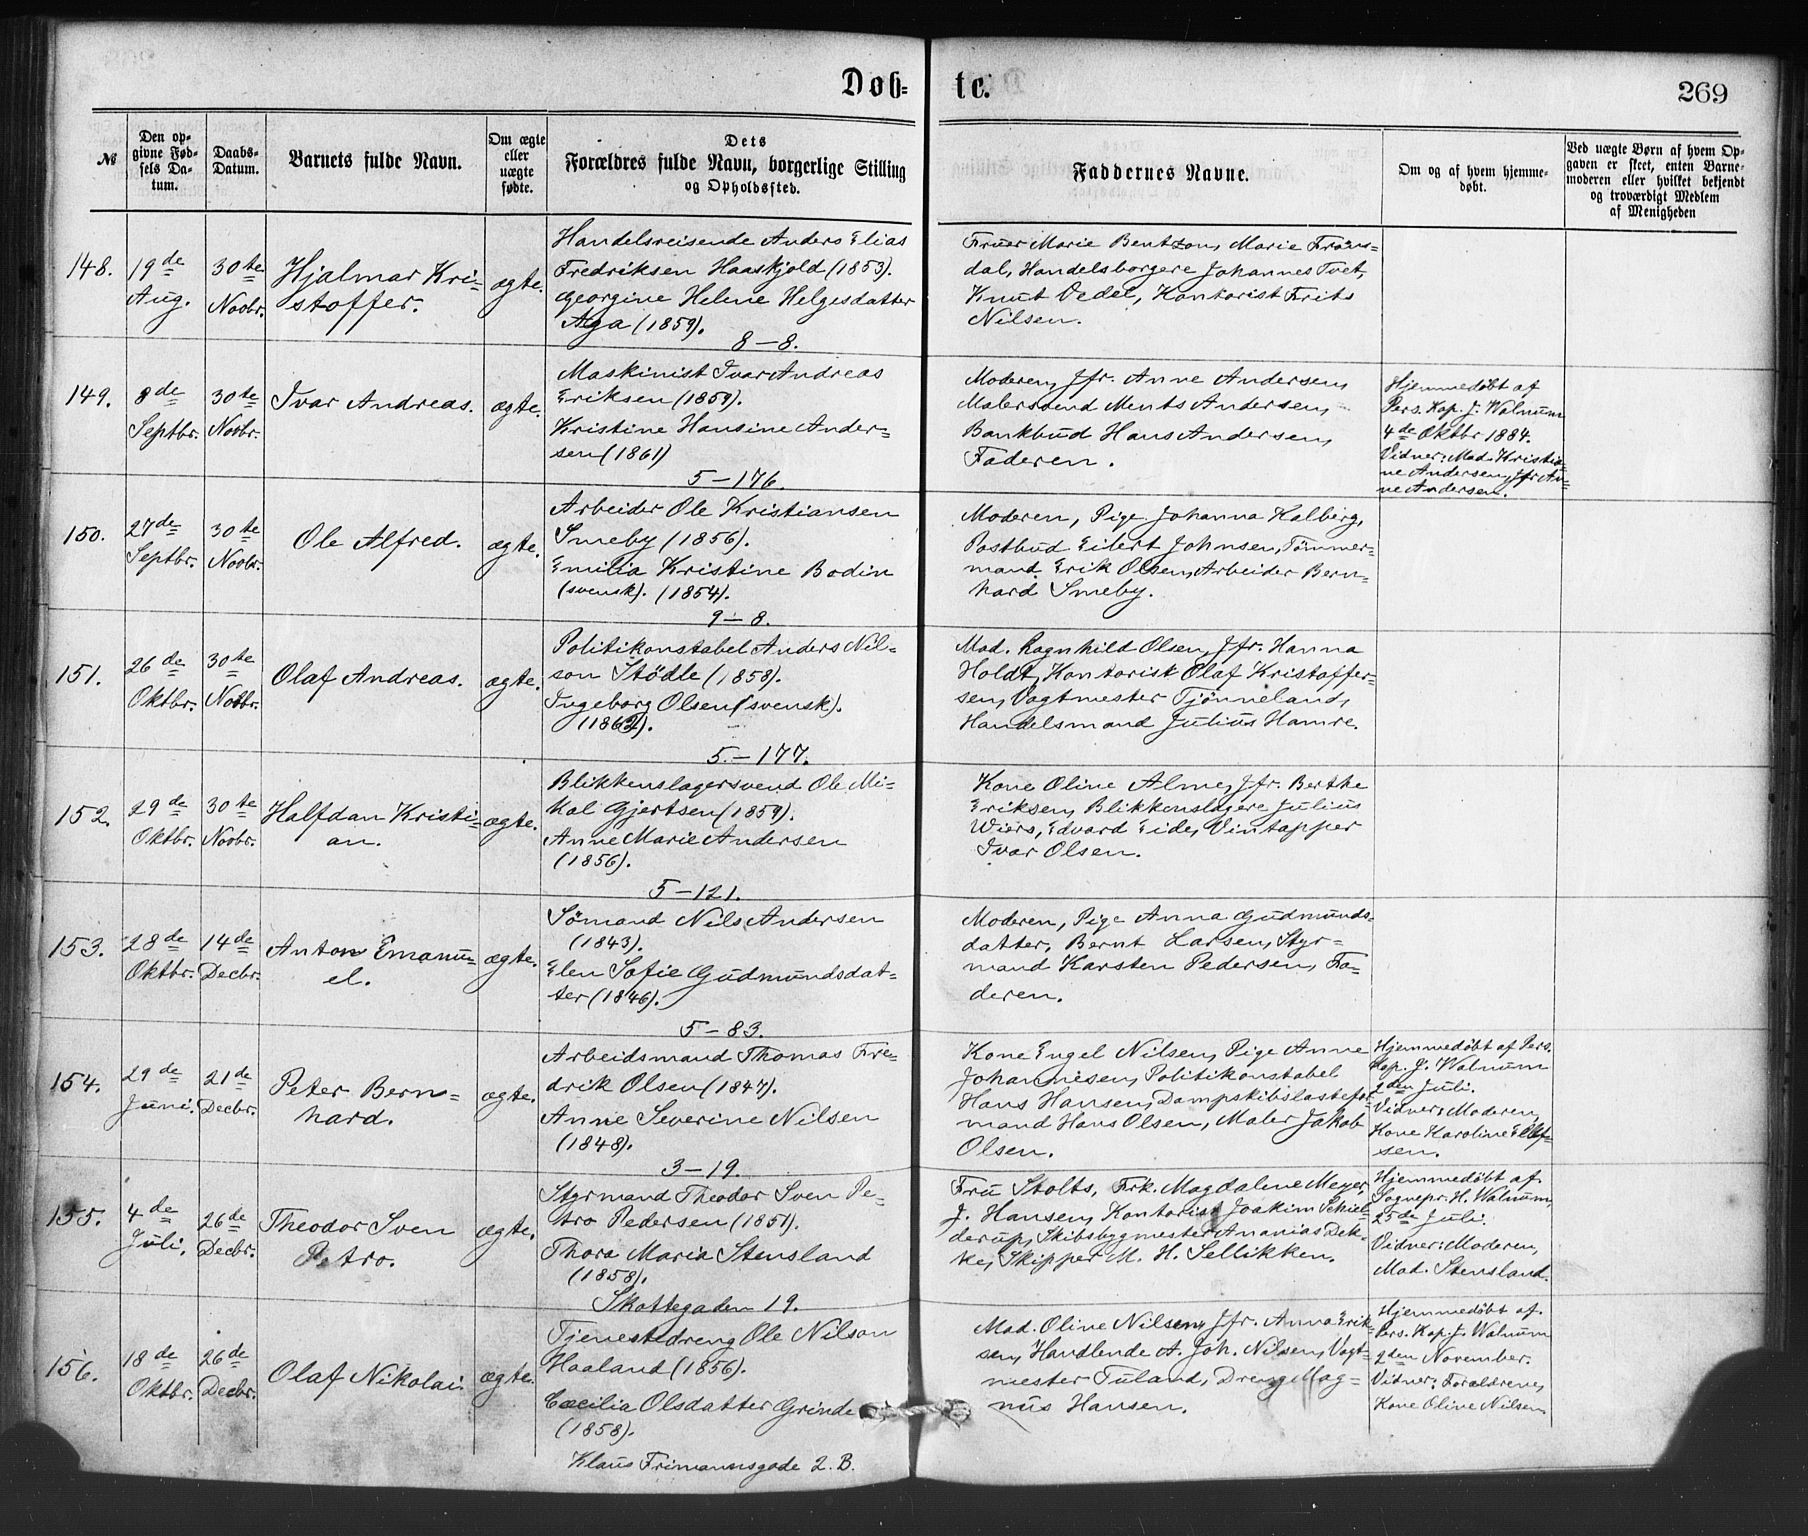 Døb-
te.
269
№
Den op-
givne Fød-
sels Da-
tum.
Daabs-
Datum.
Barnets fulde Navn.
Om ægte
eller
uægte
fødte.
Dets
Forældres fulde Navn, borgerlige Stilling
og Opholdssted.
Faddernes Navne.
Om og af hvem hjemme-
døbt.
Ved uægte Børn af hvem Op-
gaven er skeet, enten Barne-
moderen eller hvilket bekjendt
og troværdigt Medlem
af Menigheden
148.
19de
Aug.
30te
Novbr.
Hjalmar Kri-
stoffer.
ægte.
Handelsreisende Anders Elias
Fredriksen Haaskjold (1853).
Georgine Helene Helgesdatter
Aga (1859).
8-8.
Fruer Marie Bentzon, Marie Frøns-
dal, Handelsborgere Johannes Tvet,
Knut Vedel, Kontorist Frits
Nilsen.
149.
8de
Septbr.
30te
Novbr.
Ivar Andreas.
ægte.
Maskinist Ivar Andreas
Eriksen (1859).
Kristine Hansine Ander-
sen (1861)
5-176.
Moderen, Jfr. Anne Andersen,
Malersvend Ments Andersen,
Bankbud Hans Andersen,
Faderen.
Hjemmedøbt af
Pers. Kap. J. Walnum
4de Oktbr 1884.
Vidner: Mad. Kristia-
ne Andersen, Jfr An-
ne Andersen.
150.
27de
Septbr.
30te
Novbr.
Ole Alfred.
ægte.
Arbeider Ole Kristiansen
Smeby (1856).
Emilia Kristine Bodin
(svensk). (1854).
9-8.
Moderen, Pige Johanna Kalberg,
Postbud Eilert Johnsen, Tømmer-
mand Erik Olsen, Arbeider Bern-
hard Smeby.
151.
26de
Oktbr.
30te
Novbr.
Olaf Andreas.
ægte.
Politikonstabel Anders Nil-
son Stødle (1858).
Ingeborg Olsen (svensk).
(1862).
5-177.
Mad. Ragnhild Olsen, Jfr. Hanna
Holdt, Kontorist Olaf Kristoffer-
sen, Vagtmester Tjønneland,
Handelsmand Julius Hamre.
152.
29de
Oktbr.
30te
Novbr.
Halfdan Kristi-
an.
ægte.
Blikkenslagersvend Ole Mi-
kal Gjertsen (1859).
Anne Marie Andersen
(1856).
5-121.
Kone Oline Alme, Jfr. Berthe
Eriksen, Blikkenslagere Julius
Wiers, Edvard Eide, Vintapper
Ivar Olsen.
153.
28de
Oktbr.
14de
Decbr.
Anton Emanu-
el.
ægte.
Sømand Nils Andersen
(1843).
Elen Sofie Gudmundsdat-
ter (1846).
5-83.
Moderen, Pige Anna Gudmunds-
datter, Bernt Larsen, Styr-
mand Karsten Pedersen, Fa-
deren.
154.
29de
Juni.
21de
Decbr.
Peter Bern-
hard.
ægte.
Arbeidsmand Thomas Fre-
drik Olsen (1847).
Anne Severine Nilsen
(1848).
3-19.
Kone Engel Nilsen, Pige Anne
Johannesen, Politikonstabel
Hans Hansen, Dampskibslastefor-
mand Hans Olsen, Maler Jakob
Olsen.
Hjemmedøbt af Pers.
Kap. J. Walnum
2den Juli.
Vidner: Moderen,
Kone Karoline Ellef-
sen.
155.
4de
Juli.
26de
Decbr.
Theodor Sven
Petro.
ægte.
Styrmand Theodor Sven Pe-
tro Pedersen (1851).
Thora Maria Stensland
(1858).
Skottegaden 19.
Fru Stolts, Frk. Magdalene Meyer,
J. Hansen, Kontorist Joakim Schiel-
derup, Skibsbygmester Ananias Dek-
ke, Skipper M. H. Sellikken.
Hjemmedøbt af
Sognepr. H. Walnum,
25de Juli.
Vidner: Moderen,
Mad. Stensland.
156.
18de
Oktbr.
26de
Decbr.
Olaf Nikolai.
ægte.
Tjenestedreng Ole Nilson
Haaland (1856).
Cæcilia Olsdatter Grinde
(1858).
Klaus Frimannsgade 2. B.
Mad. Oline Nilsen, Jfr. Anna Erik-
sen, Handlende A. Joh. Nilsen, Vagt-
mester Tuland, Dreng Mag-
nus Hansen.
Hjemmedøbt af
Pers. Kap. J. Walnum
2den November.
Vidner: Forældrene,
Kone Oline Nilsen